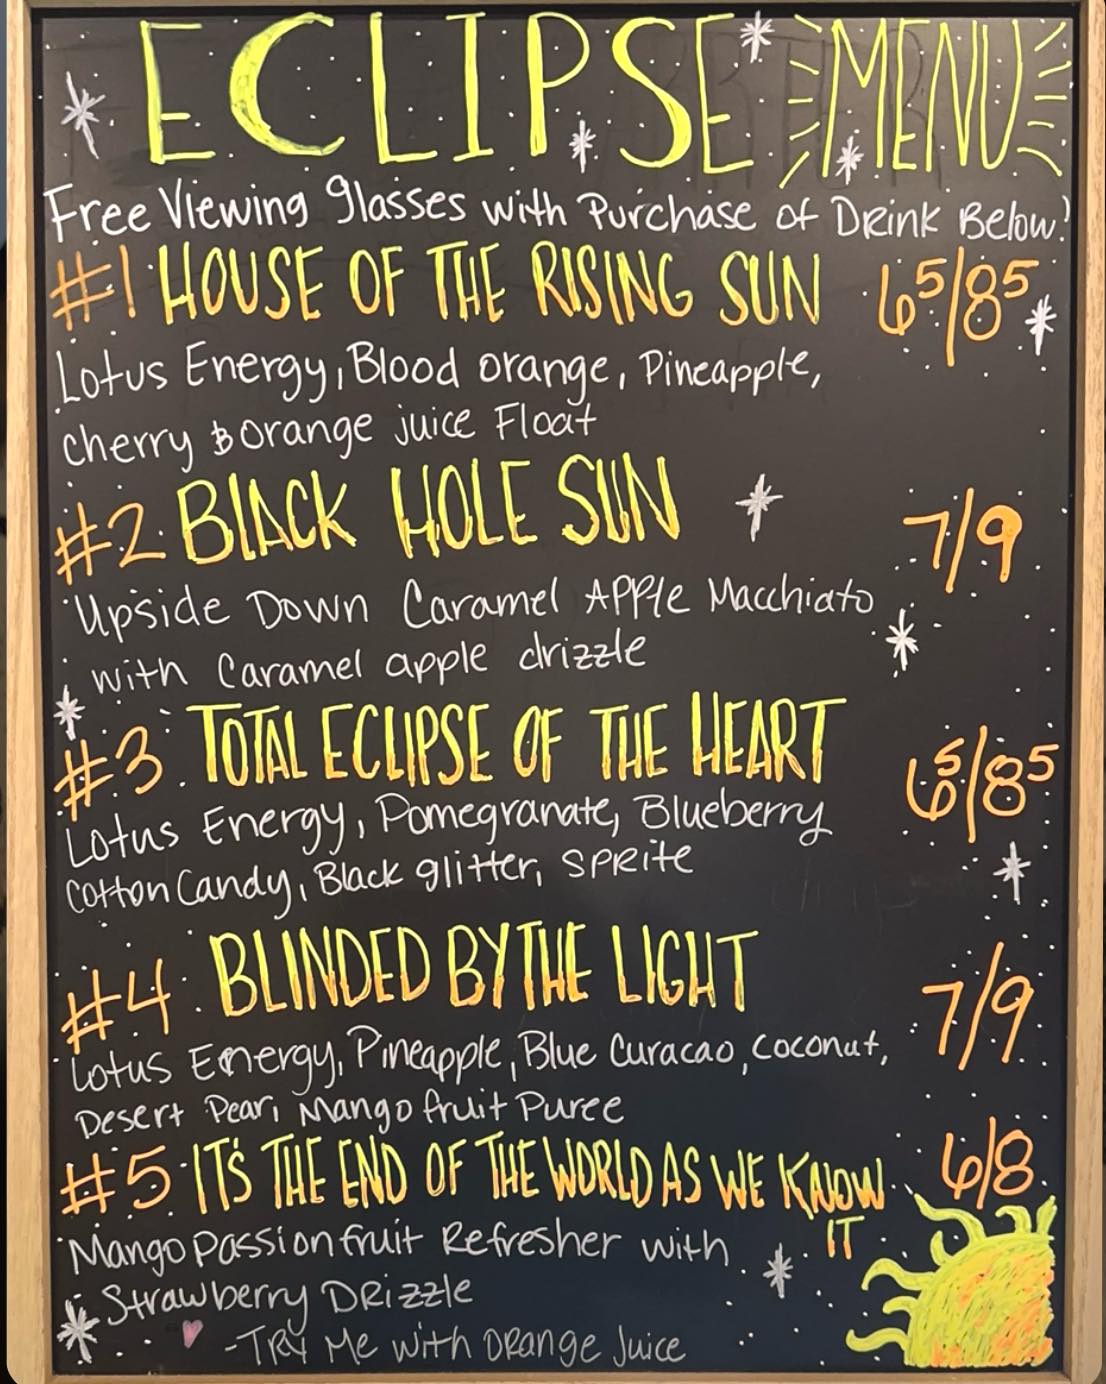 ECLIPSE MENU
Free Viewing glasses with Purchase of Drink Below!
#1 HOUSE OF THE RISING SUN 6⁵/8⁵
Lotus Energy, Blood orange, Pineapple,
cherry & orange juice Float
#2 BLACK HOLE SUN 7/9
Upside Down Caramel Apple Macchiato
with Caramel apple drizzle
#3 TOTAL ECLIPSE OF THE HEART 6⁵/8⁵
Lotus Energy, Pomegranate, Blueberry
Cotton Candy, Black glitter, SPRITE
#4 BLINDED BY THE LIGHT 7/9
Lotus Energy, Pineapple, Blue Curacao, coconut,
Desert Pear, Mango fruit Puree
#5 IT'S THE END OF THE WORLD AS WE KNOW 6/8
IT
Mango passionfruit Refresher with
Strawberry Drizzle
-TRY Me with Orange Juice